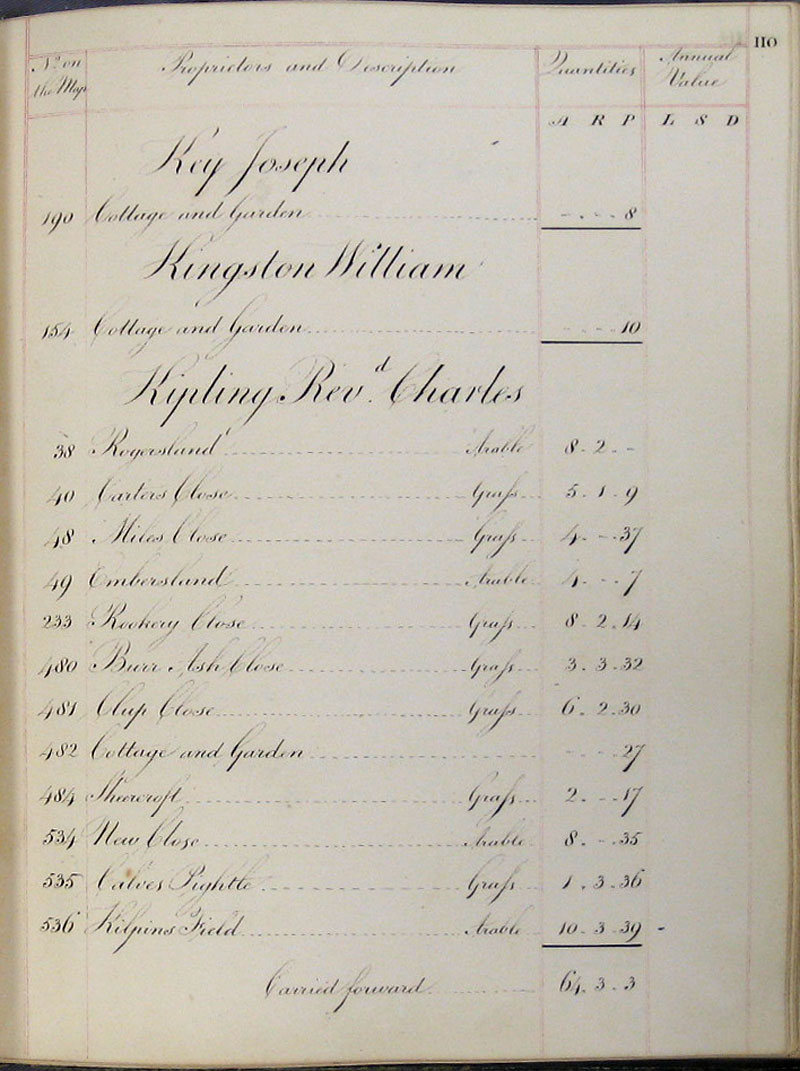 110
No. on the Map Proprietors and Description Quantities Annual Value
A R P L S D
Key Joseph
190 Cottage and Garden - - 8
Kingston William
154 Cottage and Garden - - 10
Kipling Revd. Charles
38 Rogersland Arable 8 - 2 - -
40 Carters Close Graſs 5 - 1 - 9
48 Miles Close Graſs 4 - - - 37
49 Embersland Arable 4 - - - 7
233 Rookery Close Graſs 8 - 2 - 14
480 Burr Ash Close Graſs 3 - 3 - 32
481 Clup Close Graſs 6 - 2 - 30
482 Cottage and Garden - - 27
484 Graſs 2 - - - 17
534 New Close Arable 8 - - - 35
535 Calves Pightle Graſs 1 - 3 - 36
536 Kilpins Field Arable 10 - 3 - 39
Carried forward 64 - 3 - 3